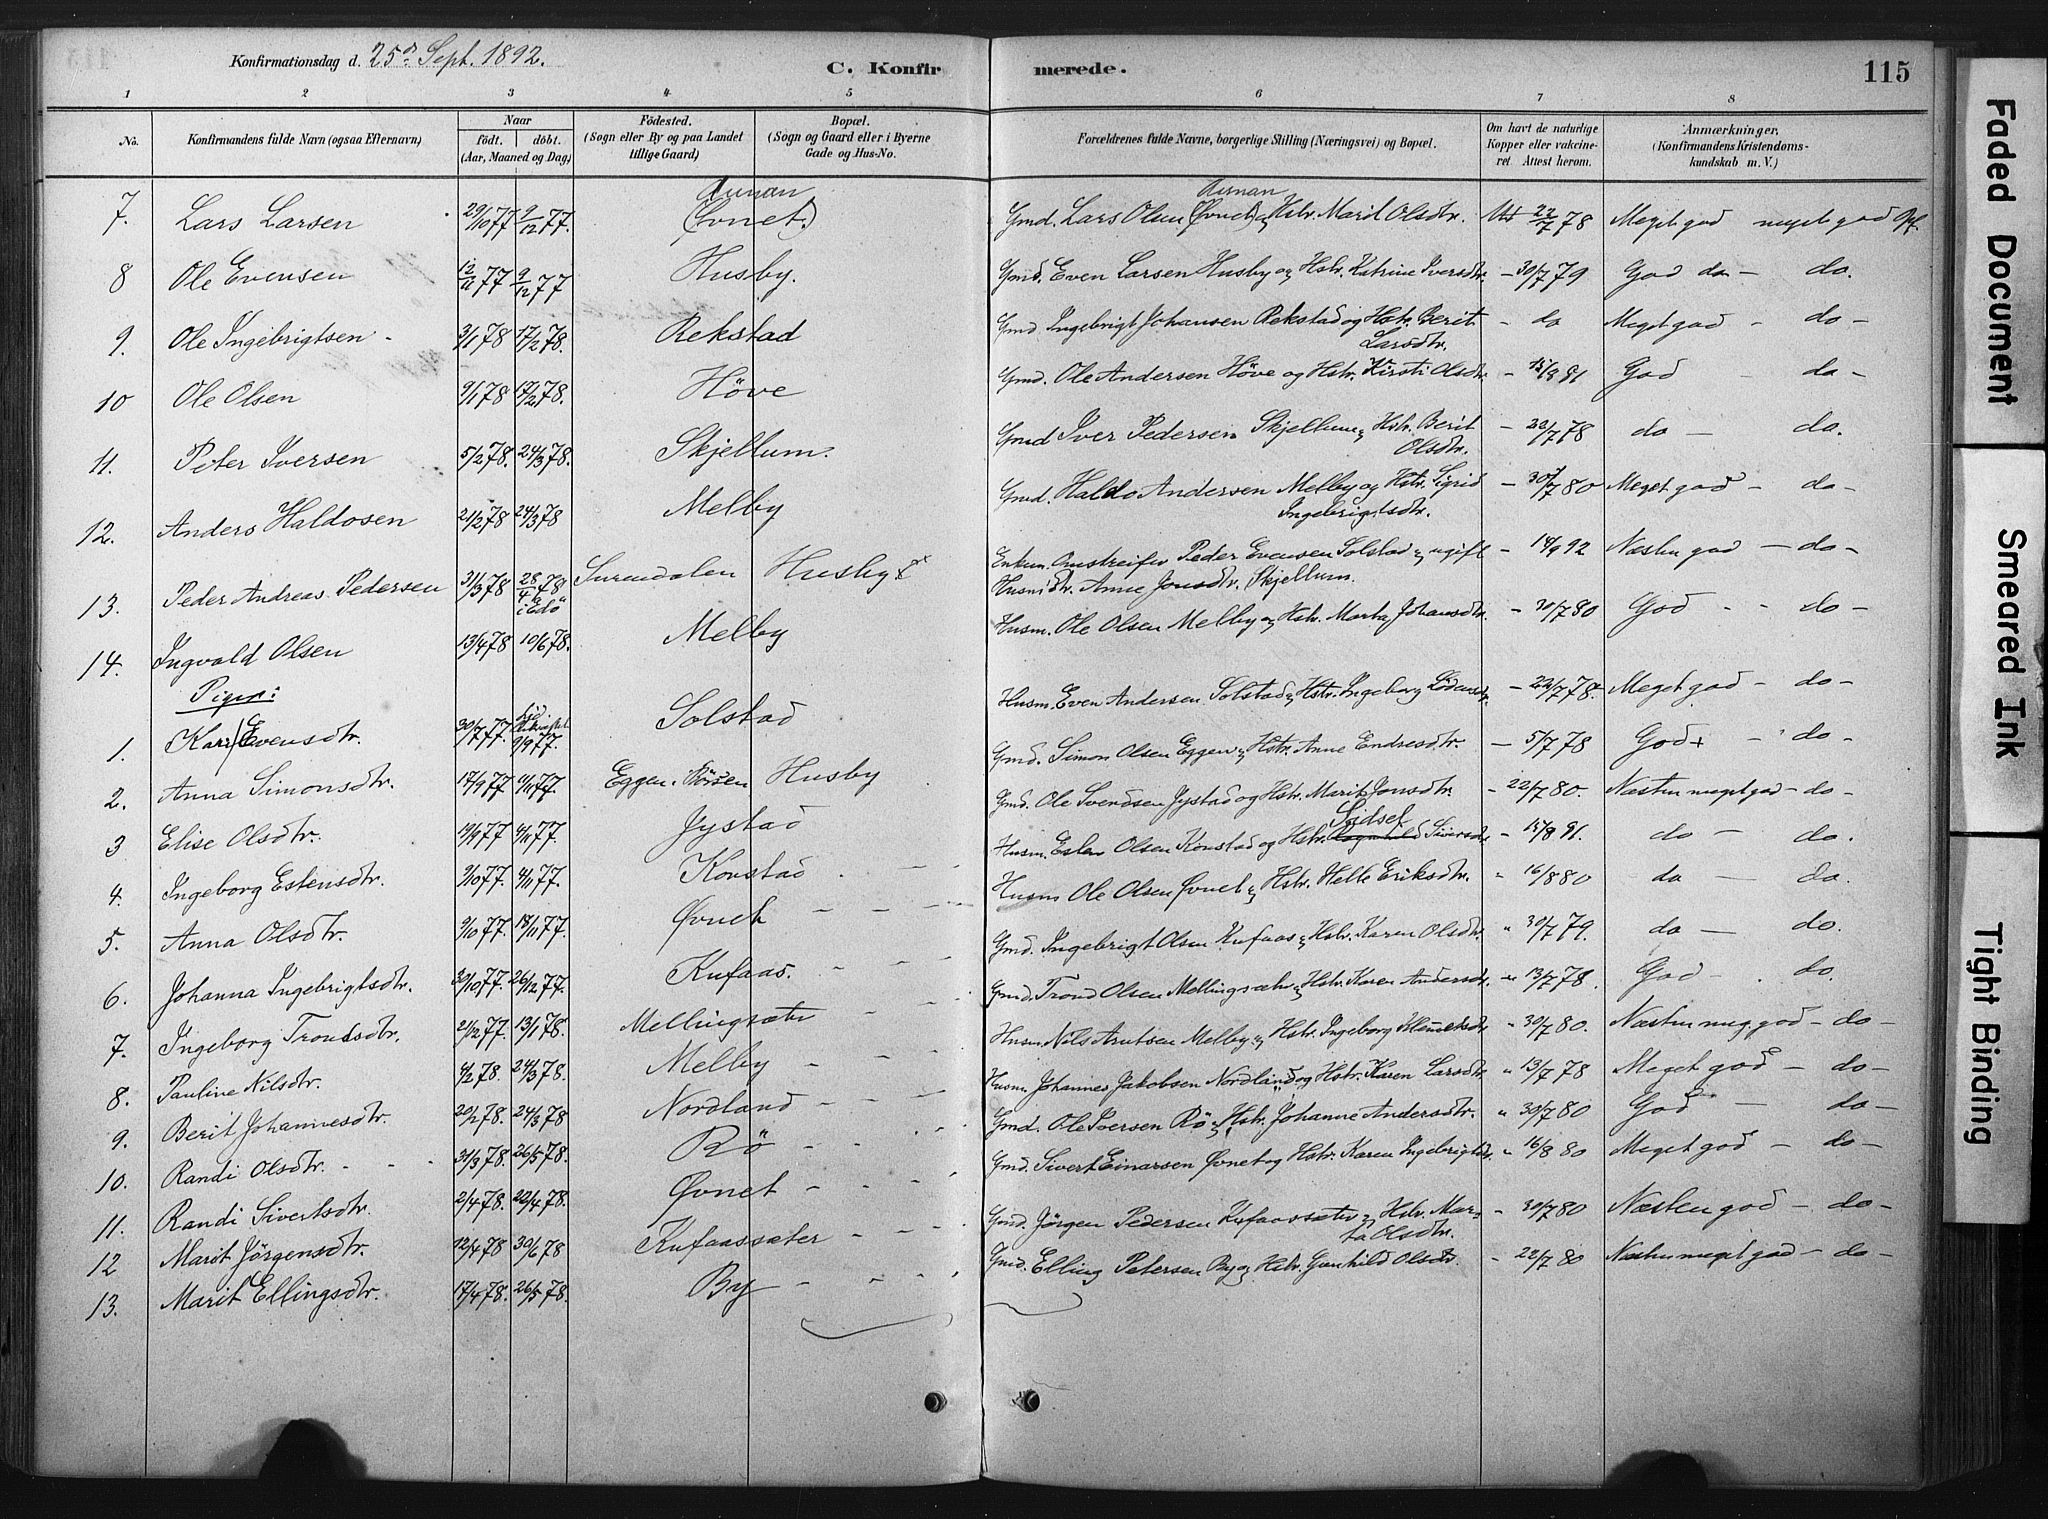 Konfirmationsdag d. 25de Sept. 1892.
C. Konfirmerede.
115
1 2 3 4 5 6 7 8
No.
Konfirmandens fulde Navn (ogsaa Efternavn)
Naar
født. døbt.
(Aar, Maaned og Dag)
Fødested.
(Sogn eller By og paa Landet
tillige Gaard)
Bopæl.
(Sogn og Gaard eller i Byerne
Gade og Hus-No.
Forældrenes fulde Navne, borgerlige Stilling (Næringsvei) og Bopæl.
Om havt de naturlige
Kopper eller vakcine-
ret Attest herom.
Anmærkninger.
(Konfirmandens Kristendoms-
kundskab m. V.)
Aunan Aunan
7. Lars Larsen 29/10 77 9/12 77. (Øvnet) Gmd. Lars Olsen (Øvnet) og Hstr. Marit Olsdtr. 22/7 78 Meget god meget god Opf.
8 Ole Evensen 12/11 77 9/12 77 Husby. Gmd. Even Larsen Husby og Hstr. Katrine Iversdtr. - 30/7 79 God do - do.
9. Ole Ingebrigtsen - 3/1 78 17/2 78. Rekstad Gmd Ingebrigt Johansen Rekstad og Hstr. Berit - do Meget god - do -
Larsdtr.
10 Ole Olsen 9/1 78 17/2 78. Höve Gmd. Ole Andersen Höve og Hstr. Kirsti Olsdtr - 15/8 91 God - do -
11. Peter Iversen 5/2 78. 24/3 78. Skjellum. Gmd Iver Pedersen Skjellum og Hstr. Berit - 22/7 78 do - do.
Olsdtr.
12. Anders Haldosen 21/2 78 24/3 78 Melby Gmd. Haldo Andersen Melby og Hstr. Sigrid - 30/7 80 Meget god - do -
Ingebrigtsdtr.
13. Peder Andreas Pedersen 31/3 78 28/4 78 Surendalen Husby Enkem. Omstreifer Peder Evensen Solstad og ugift - 14/9 92 Næsten god - do -
i Edö Husm.dtr. Anne Jonsdtr. Skjellum.
14. Ingvald Olsen 13/4 78 10/6 78. Melby Husm. Ole Olsen Melby og Hstr. Marta Johansdtr. - 30/7 80 God - - do -
Piger:
1. Kari Evensdtr. 30/7 77. 9/9 77. Solstad Husm. Even Andersen Solstad og Hstr. Ingeborg - 22/7 78. Meget god - do -
2. Anna Simonsdtr. 17/9 77 4/11 77. Eggen. Börsen Husby Gmd. Simon Olsen Eggen og Hstr. Anne Endresdtr. - 5/7 78 God - do -
3 Elise Olsdtr. 19/9 77 4/11 77. Jystad Gmd. Ole Svendsen Jystad og Hstr. Marit Jonsdtr. - 22/7 80. Næsten meget god - do -
Sidsel
4. Ingeborg Estensdtr. 9/10 77. 4/11 77. Konstad Husm. Esten Olsen Konstad og Hstr. Ragnhild Siversdtr - 15/8 91. do - do.
5. Anna Olsdtr. 9/10 77. 18/11 77. Øvnet - - - Husm Ole Olsen Øvnet og Hstr. Helle Eriksdtr. " 16/8 80 do - do.
6. Johanna Ingebrigtsdtr. 30/10 77. 26/12 77. Kufaas. - - - Gmd. Ingebrigt Olsen Kufaas og Hstr. Karen Olsdtr. " 30/7 79. do - do.
7. Ingeborg Trondsdtr. 21/12 77. 13/1 78. Mellingsæter - - Gmd. Trond Olsen Mellingsætr og Hstr. Karen Andersdtr. " 13/7 78. God - do.
8. Pauline Nilsdtr. 4/2 78. 24/3 78. Melby - - - Husm. Nils Arntsen Melby og Hstr. Ingeborg " 30/7 80. Næsten meg. god - do -
9. Berit Johannesdtr. 20/2 78. 24/3 78 Nordland - - - Husm Johannes Jakobsen Nordland og Hstr. Karen Larsdtr " 13/7 78 Meget god - do -
10. Randi Olsdtr. - - 31/3 78. 26/5 78. Rö - - Gmd. Ole Iversen Rö og Hstr. Johanne Andersdtr. " 30/7 80 God - do -
11. Randi Sivertsdtr. 2/4 78. 22/4 78. Øvnet - - - Gmd. Sivert Einarsen Øvnet og Hstr. Karen Ingebrigtsdtr. " 16/8 80 Meget god - do -
12 Marit Jörgensdtr. 12/4 78 30/6 78 Kufaassæter - - - Gmd. Jörgen Pedersen Kufaassæter og Hstr. Mar- - 30/7 80 Næsten god - do -
ta Olsdtr.
13. Marit Ellingsdtr. 17/4 78. 26/5 78. By - - - Gmd. Elling Petersen By og Hstr. Gunhild Olsdtr. - 22/7 80 Næsten meget god - do -
Faded Document
Smeared Ink
Tight Binding